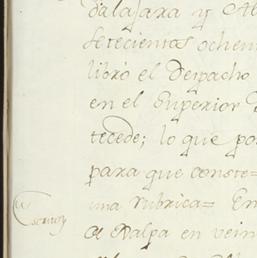 dalajara y Al
setecientos ochen
libró el Despacho
en el Superior
tecede; lo que po
para que conste=
una rubrica= En
de Xalpa en vein